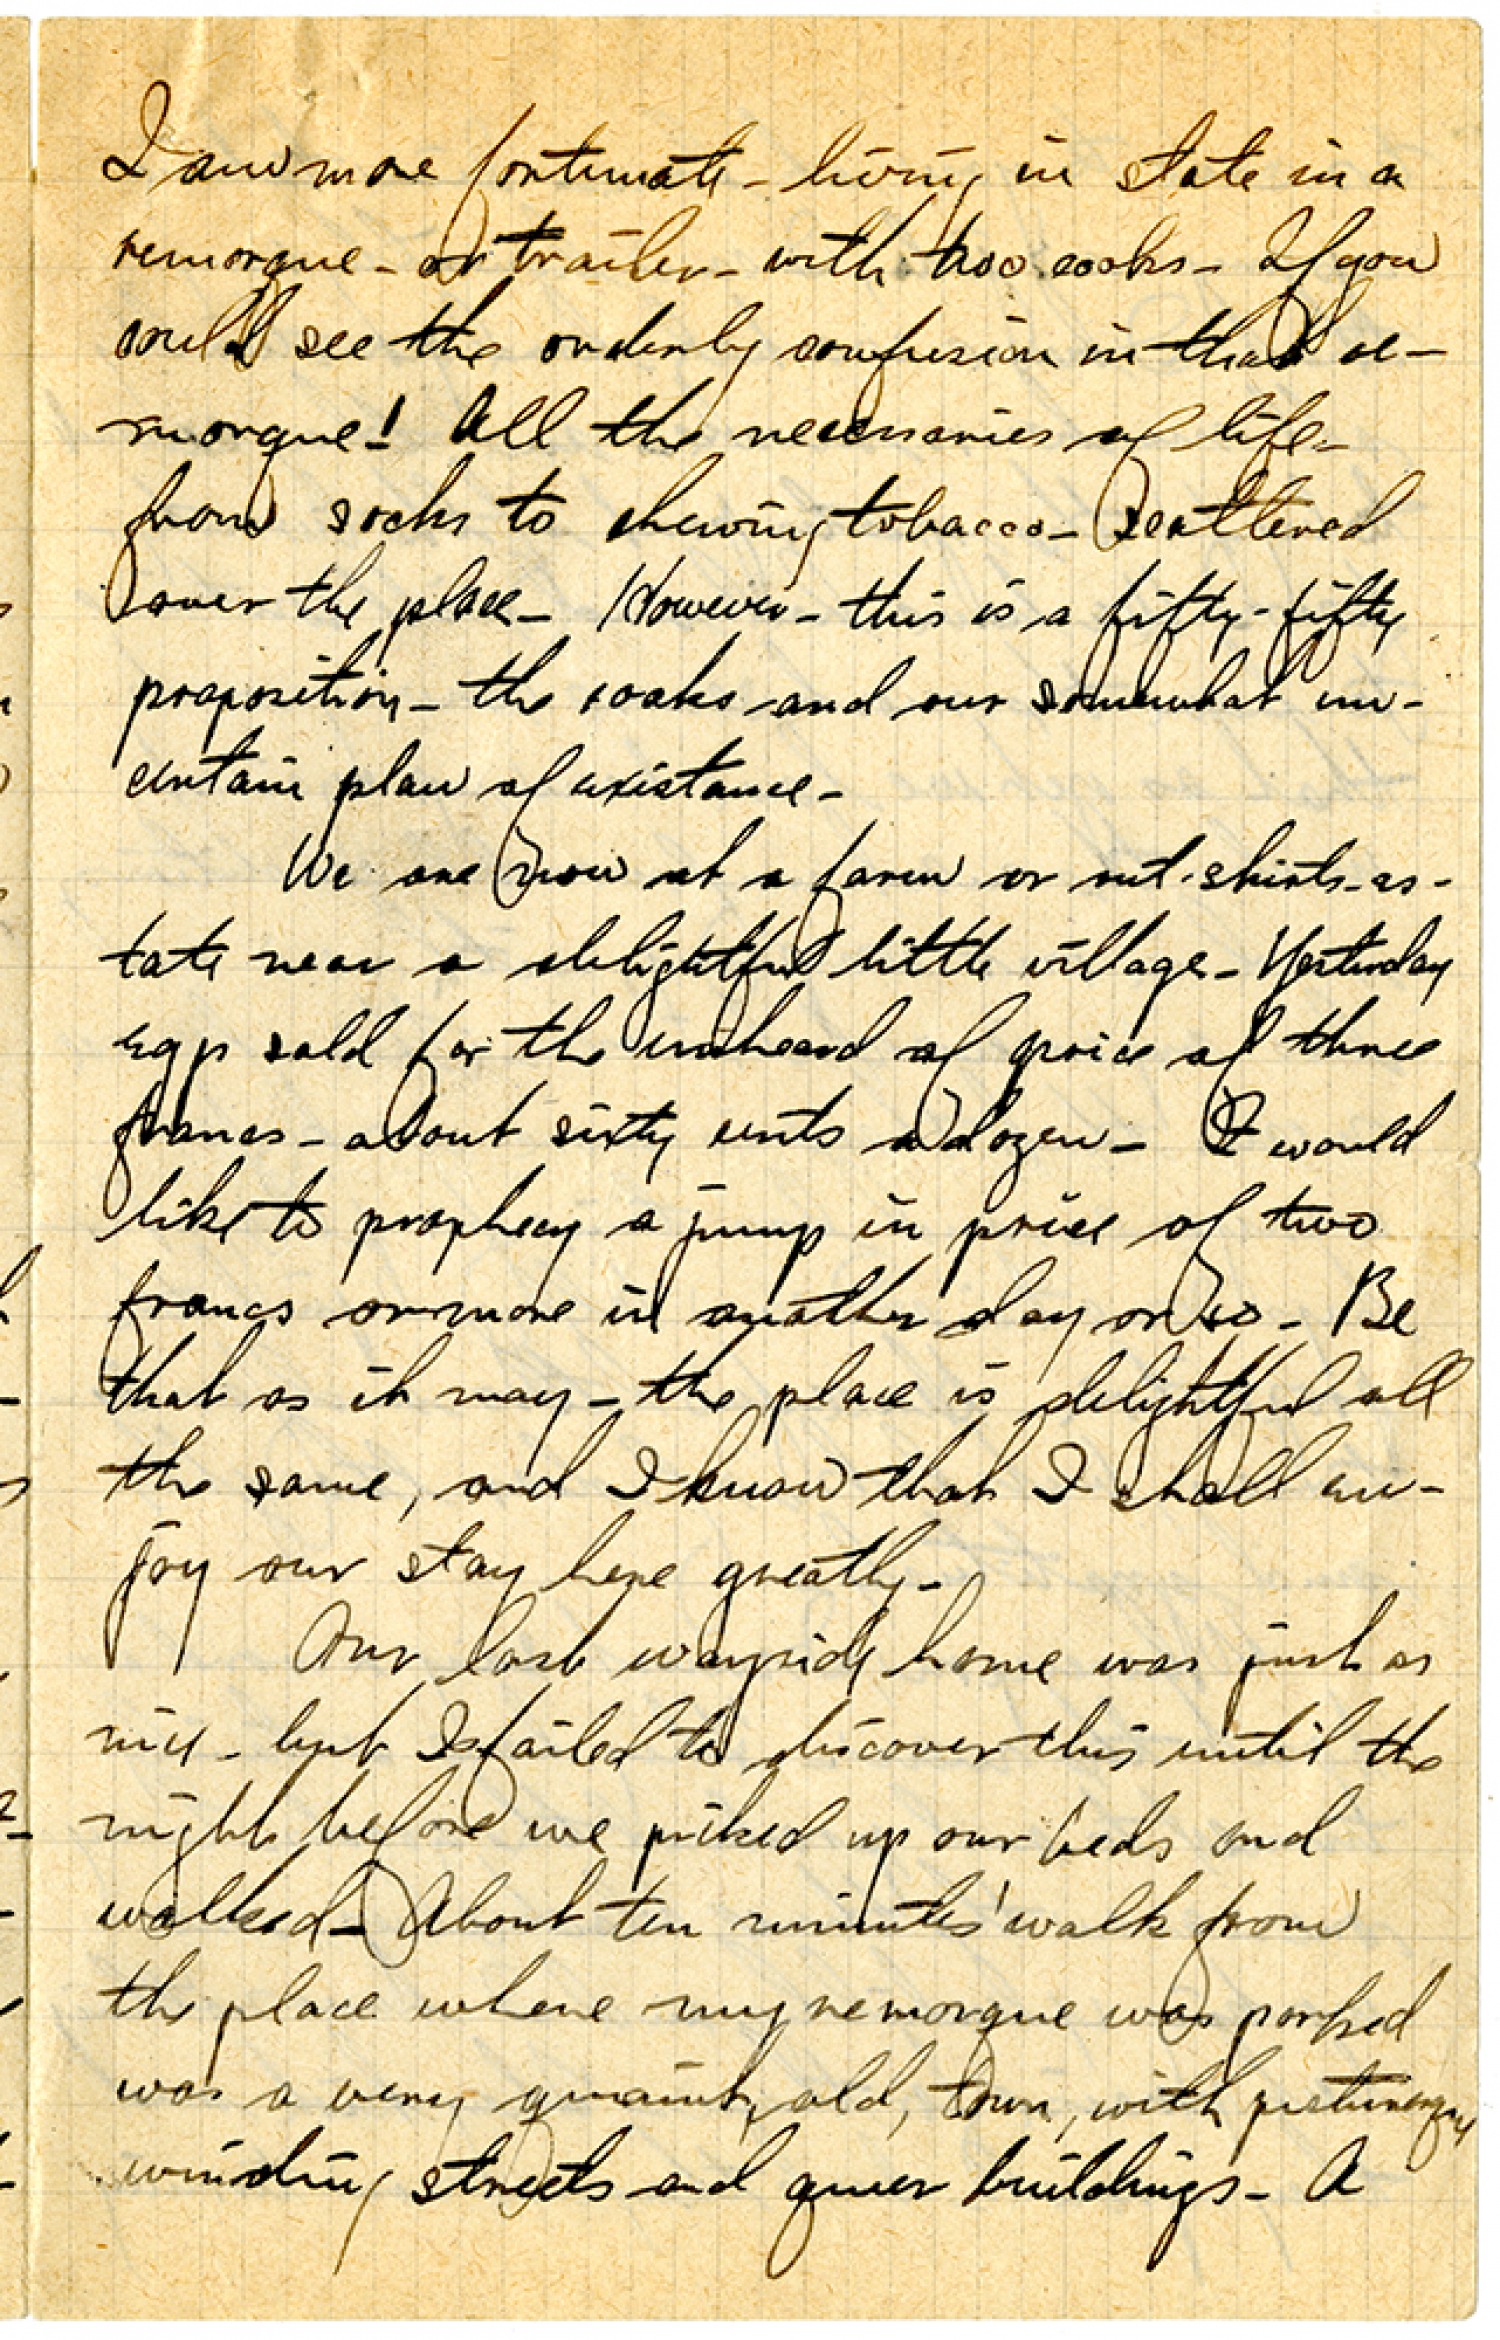 I am more fortunate - living in state in a
remorque - or trailer - with two cooks - If you
could see the orderly confusion in that re-
morque! All the necessaries of life -
from socks to chewing tobacco - scattered
over the place - However - this is a fifty-fifty
proposition - the cooks and our somewhat un-
certain plan of existance -
We are now at a farm or out-skirts-es-
tate near a delightful little village - Yesterday
eggs sold for the unheard of price of three
francs - about sixty cents a dozen - I would
like to prophecy a jump in price of two
francs or more in another day or so - Be
that as it may - the place is delightful all
the same, and I know that I shall en-
joy our stay here greatly -
Our last wayside home was just as
nice - but I failed to discover this until the
night before we picked up our beds and
walked - About ten minutes' walk from
the place where my remorque was parked
was a very quaint, old, town, with picturesque
winding streets and queer buildings - A